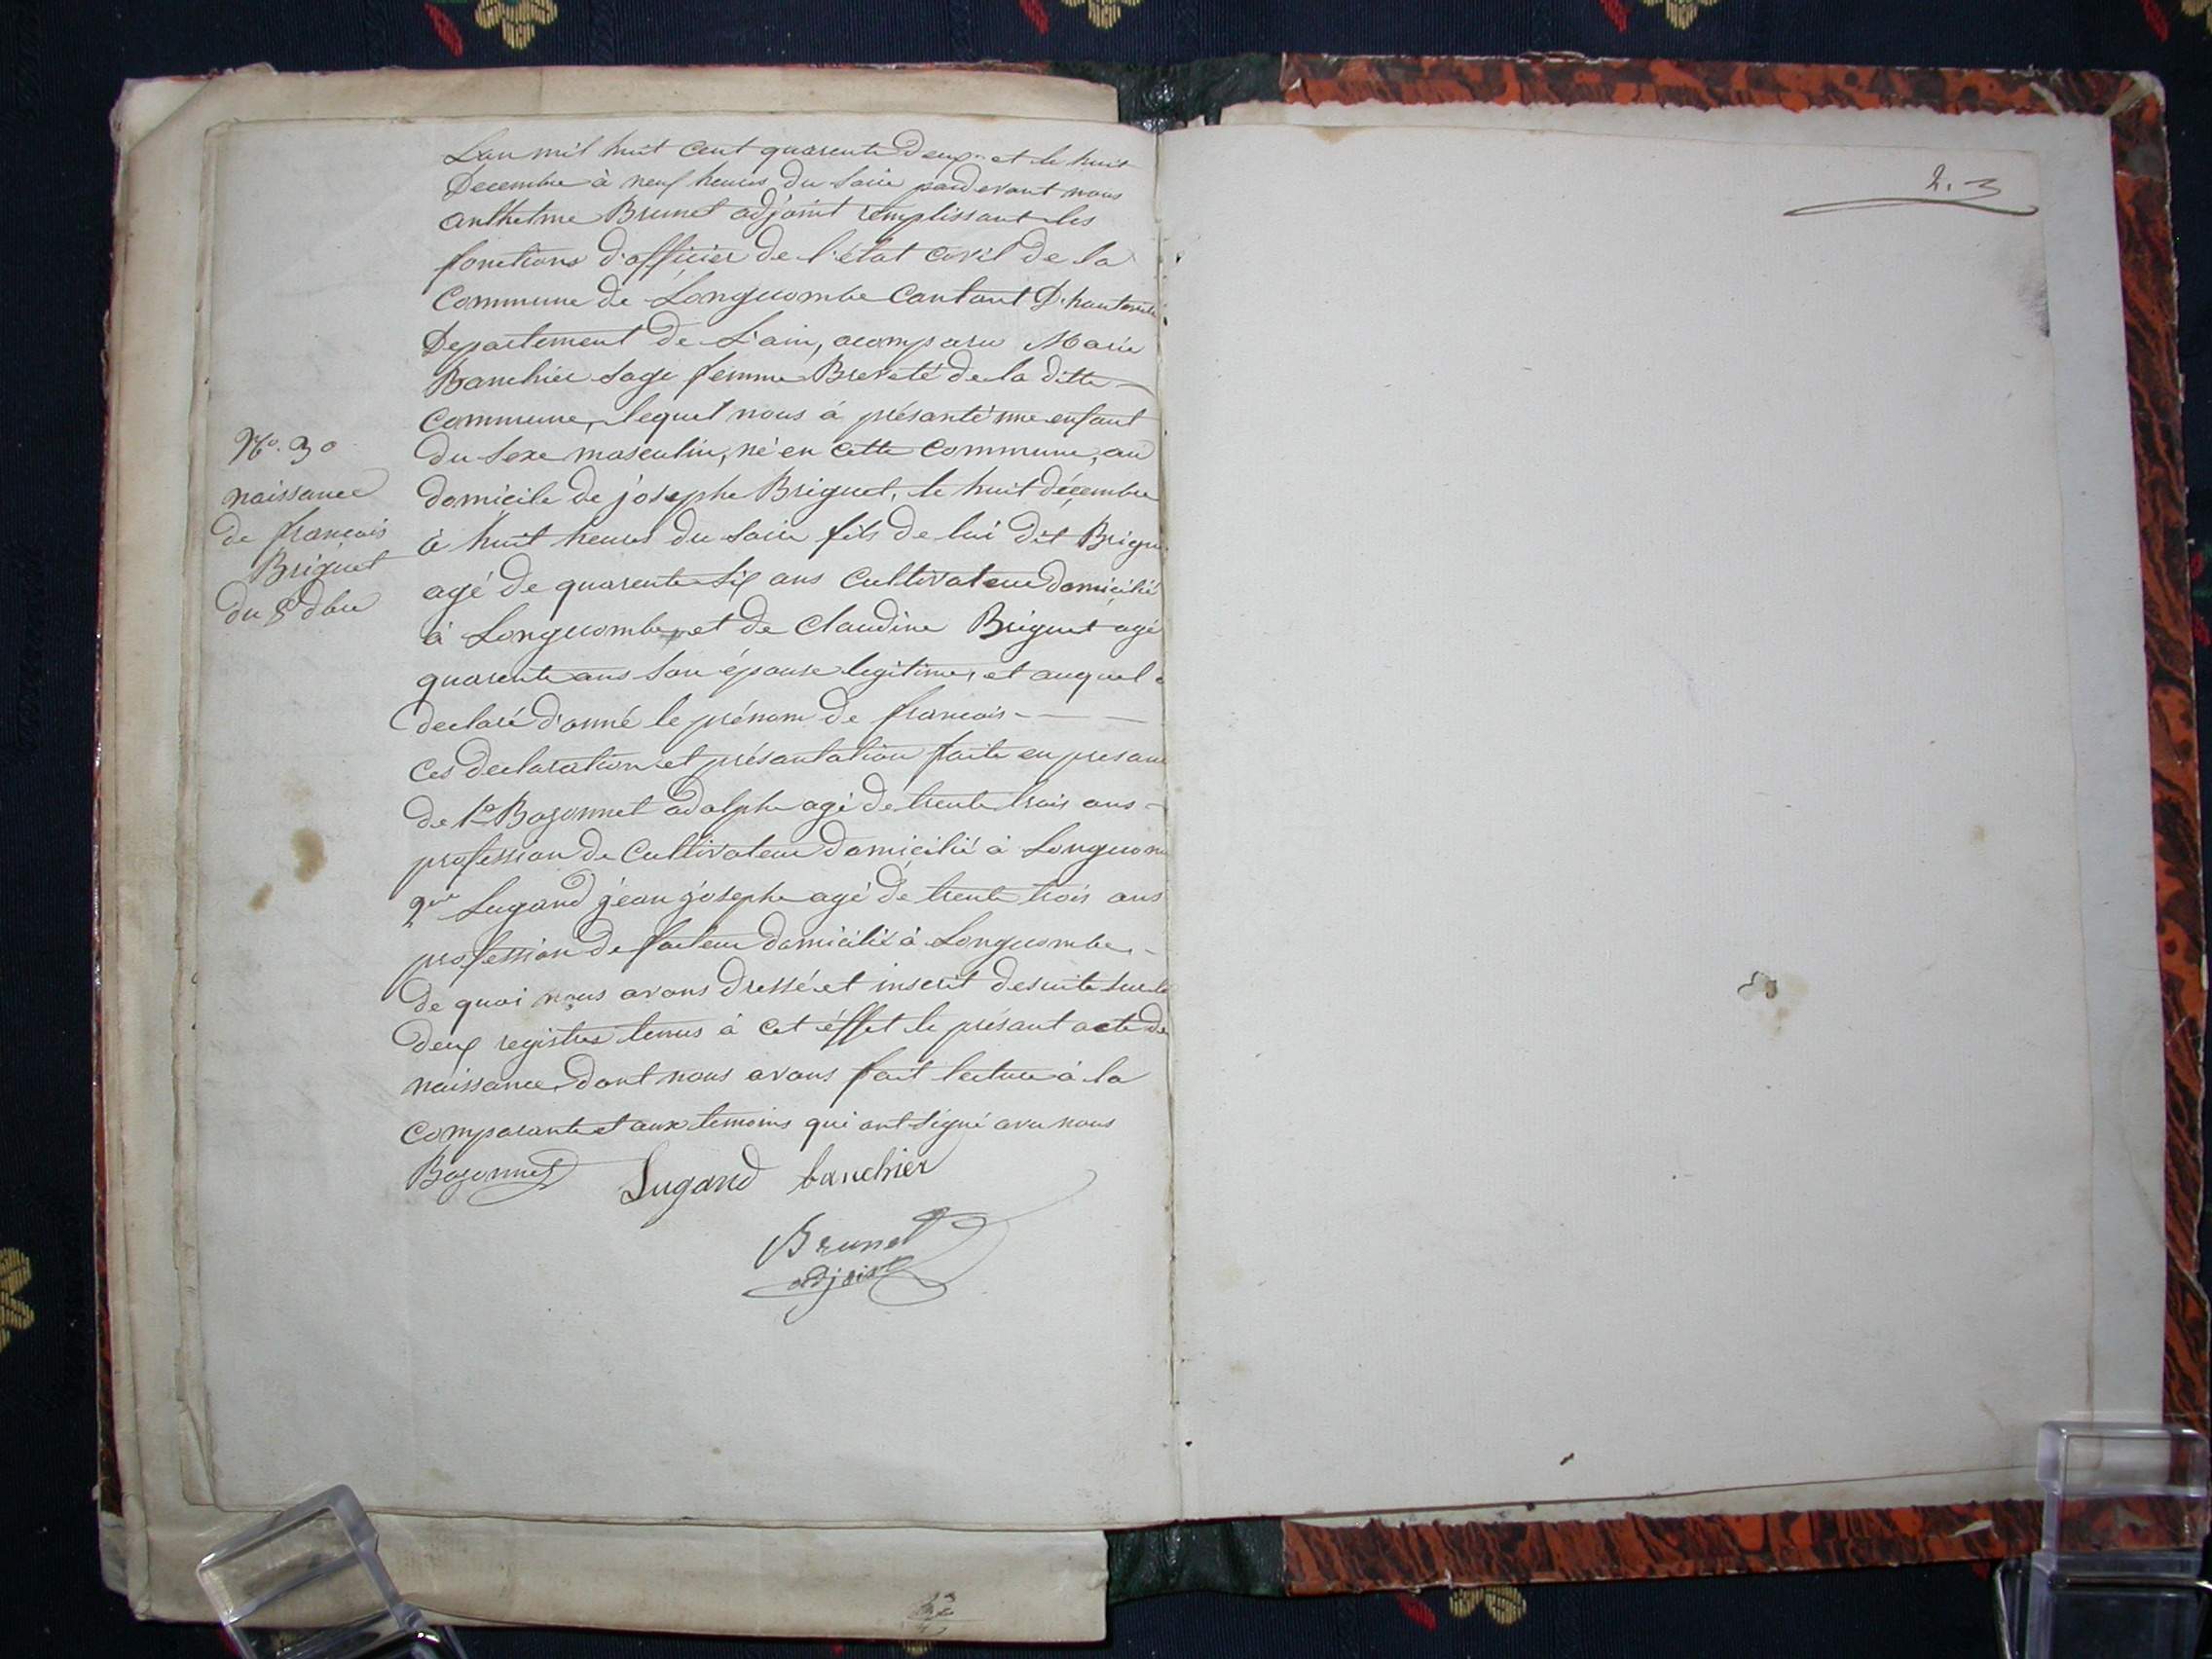 L'an mil huit cent quarente deux et le huit
Decembre à neuf heures du soire pardevant nous
anthelme Brunet adjoint remplissant les
fonctions d'officier de l'état civil de la
Commune de Longecombe Cantont D'hauteville
Departement de L'ain, acomparu Marie
Banchier sage femme Breveté de la ditte
Commune, lequel nous à présanté une enfant
du sexe masculin, né en cette Commune, au
domicile de josephe Briguet, le huit décembre
à huit heures du soire fils de lui dit Brigu
agé de quarente six ans Cultivateur domicilié
à Longecombe, et de Claudine Briguet agé
quarente ans son épouse legitime, et auquel a
declaré d'onné le prénom de francois
Ces declaration et présantation faite en presan
de 1o Bozonnet adolphe agé de trente trois ans
profession de Cultivateur domicilié à Longecom
Lugand jean josephe agé de trente trois ans
profession de facteur domicilié à Longecombe
de quoi nous avons dressé et inscrit desuite sur le
deux registres tenus à cet éffet le présant acte de
naissance, dont nous avons fait lecture à la
Comparante et aux temoins qui ont signé avec nous
Bozonnet Lugand banchier
Brunet
adjoint
No. 30
naissance
de francois
Briguet
du 8 dbre
2. 3